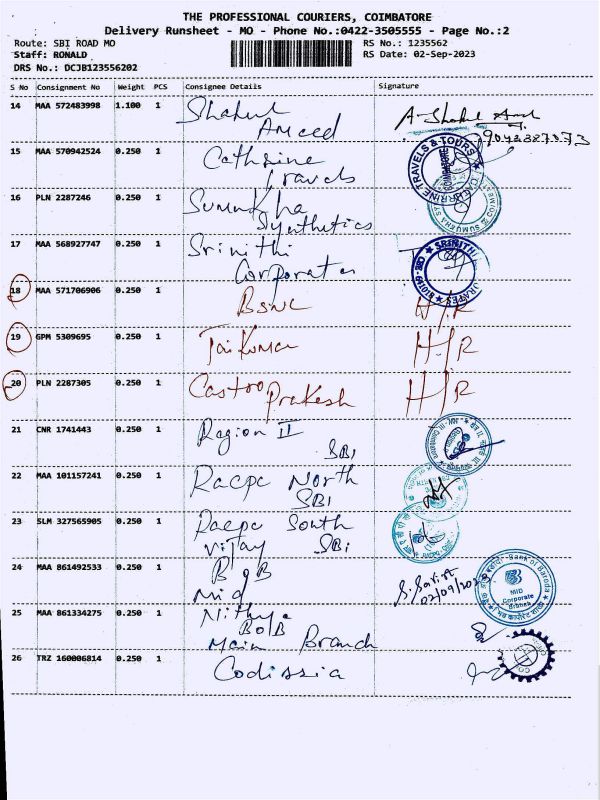 THE PROFESSIONAL COURIERS, COIMBATORE
Delivery Runsheet - MO - Phone No.:0422-3505555 - Page No.:2
Route: SBI ROAD MO
RS No.: 1235562
Staff: RONALD
RS Date: 02-Sep-2023
DRS No.: DCJB123556202
S No Consignment No Weight PCS Consignee Details Signature
14 MAA 572483998 1.100 1 Shahul
Ameed
9043387073
15 MAA 570942524 0.250 1 Cathrine
Travels
CATHRINE TRAVELS & TOURS
16 PLN 2287246 0.250 1 Sumukha
Synthetics
17 MAA 568927747 0.250 1 Srinithi
Corporates
SRINITHI
18 MAA 571706906 0.250 1 BSNL H/R
19 GPM 5309695 0.250 1 Jaikumar H/R
20 PLN 2287305 0.250 1 Castro Prakesh H/R
21 CNR 1741443 0.250 1 Region II
SBI
22 MAA 101157241 0.250 1 Racpc North
SBI
23 SLM 327565905 0.250 1 Racpc South
Vijay SBi
24 MAA 861492533 0.250 1 BOB
Mid
02/09/2023
Bank of Baroda
MID
Corporate
Branch
25 MAA 861334275 0.250 1 Nithya
BOB
Main Branch
26 TRZ 160006814 0.250 1 Codissia